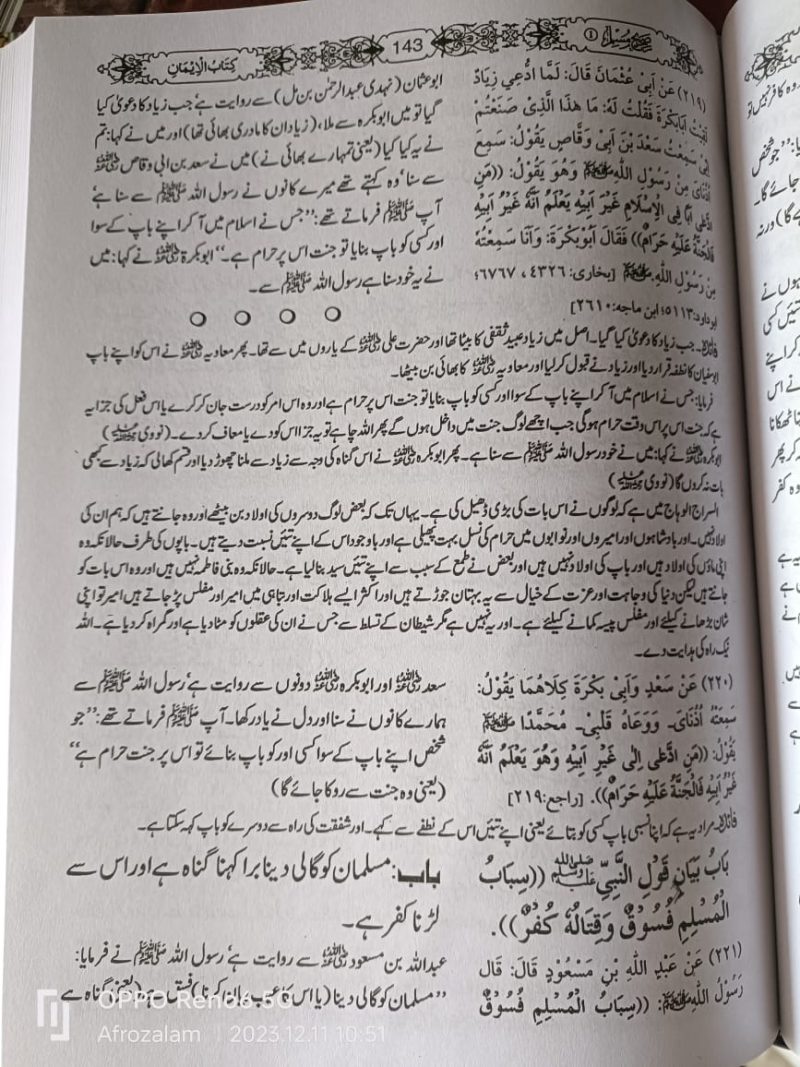 صحیح مسلم ①
143
کتاب الایمان
(۲۱۹) عَنْ اَبِیْ عُثْمَانَ قَالَ: لَمَّا ادُّعِیَ زِیَادٌ
لَقِیْتُ اَبَابَکْرَةَ فَقُلْتُ لَهُ: مَا هٰذَا الَّذِیْ صَنَعْتُمْ
اِنِّیْ سَمِعْتُ سَعْدَ بْنَ اَبِیْ وَقَّاصٍ یَقُوْلُ: سَمِعَ
اُذُنَایَ مِنْ رَسُوْلِ اللّٰهِ ﷺ وَهُوَ یَقُوْلُ: ((مَنِ
ادَّعٰی اَبًا فِی الْاِسْلَامِ غَیْرَ اَبِیْهِ یَعْلَمُ اَنَّهُ غَیْرُ اَبِیْهِ
فَالْجَنَّةُ عَلَیْهِ حَرَامٌ)) فَقَالَ اَبُوْبَکْرَةَ: وَاَنَا سَمِعْتُهُ
مِنْ رَسُوْلِ اللّٰهِ ﷺ [بخاری: ۴۳۲۶ ، ۶۷۶۷؛
ابو داود: ۵۱۱۳؛ ابن ماجه: ۲۶۱۰]
ابوعثمان (نہدی عبدالرحمٰن بن مل) سے روایت ہے' جب زیاد کا دعویٰ کیا
گیا تو میں ابوبکرہ سے ملا، (زیاد ان کا مادری بھائی تھا) اور میں نے کہا: تم
نے یہ کیا کیا (یعنی تمہارے بھائی نے) میں نے سعد بن ابی وقاص ؓ
سے سنا' وہ کہتے تھے میرے کانوں نے رسول اللہ ﷺ سے سنا ہے'
آپ ﷺ فرماتے تھے: ”جس نے اسلام میں آ کر اپنے باپ کے سوا
اور کسی کو باپ بنایا تو جنت اس پر حرام ہے۔“ ابوبکرۃ ؓ نے کہا: میں
نے یہ خود سنا ہے رسول اللہ ﷺ سے۔
فائدہ۔ جب زیاد کا دعویٰ کیا گیا۔ اصل میں زیاد عبید ثقفی کا بیٹا تھا اور حضرت علی ؓ کے یاروں میں سے تھا۔ پھر معاویہ ؓ نے اس کو اپنے باپ
ابوسفیان کا نطفہ قرار دیا اور زیاد نے قبول کر لیا اور معاویہ ؓ کا بھائی بن بیٹھا۔
فرمایا: جس نے اسلام میں آ کر اپنے باپ کے سوا اور کسی کو باپ بنایا تو جنت اس پر حرام ہے اور وہ اس امر کو درست جان کر کرے یا اس فعل کی جزا یہ
ہے کہ جنت اس پر اس وقت حرام ہو گی جب اچھے لوگ جنت میں داخل ہوں گے پھر اللہ چاہے تو یہ جزا اس کو دے یا معاف کر دے۔ (نووی ؒ)
ابوبکرہ ؓ نے کہا: میں نے خود رسول اللہ ﷺ سے سنا ہے۔ پھر ابوبکرہ ؓ نے اس گناہ کی وجہ سے زیاد سے ملنا چھوڑ دیا اور قسم کھالی کہ زیاد سے کبھی
بات نہ کروں گا (نووی ؒ)
السراج الوہاج میں ہے کہ لوگوں نے اس بات کی بڑی ڈھیل کی ہے۔ یہاں تک کہ بعض لوگ دوسروں کی اولاد بن بیٹھے اور وہ جانتے ہیں کہ ہم ان کی
اولاد نہیں۔ اور بادشاہوں اور امیروں اور نوابوں میں حرام کی نسل بہت پھیلی ہے اور باوجود اس کے اپنے تئیں نسبت دیتے ہیں۔ باپوں کی طرف حالانکہ وہ
اپنی ماؤں کی اولاد ہیں اور باپ کی اولاد نہیں ہیں اور بعض نے طمع کے سبب سے اپنے تئیں سید بنا لیا ہے۔ حالانکہ وہ بنی فاطمہ نہیں ہیں اور وہ اس بات کو
جانتے ہیں لیکن دنیا کی وجاہت اور عزت کے خیال سے یہ بہتان جوڑتے ہیں اور اکثر ایسے ہلاکت اور تباہی میں امیر اور مفلس پڑ جاتے ہیں امیر تو اپنی
شان بڑھانے کیلئے اور مفلس پیسہ کمانے کیلئے ہے۔ اور یہ نہیں ہے مگر شیطان کے تسلط سے جس نے ان کی عقلوں کو مٹا دیا ہے اور گمراہ کر دیا ہے۔ اللہ
نیک راہ کی ہدایت دے۔
(۲۲۰) عَنْ سَعْدٍ وَاَبِیْ بَکْرَةَ کِلَاهُمَا یَقُوْلُ:
سَمِعَتْهُ اُذُنَایَ۔ وَوَعَاهُ قَلْبِیْ۔ مُحَمَّدًا ﷺ
یَقُوْلُ: ((مَنِ ادَّعٰی اِلٰی غَیْرِ اَبِیْهِ وَهُوَ یَعْلَمُ اَنَّهُ
غَیْرُ اَبِیْهِ فَالْجَنَّةُ عَلَیْهِ حَرَامٌ)). [راجع: ۲۱۹]
سعد ؓ اور ابوبکرہ ؓ دونوں سے روایت ہے' رسول اللہ ﷺ سے
ہمارے کانوں نے سنا اور دل نے یاد رکھا۔ آپ ﷺ فرماتے تھے: ”جو
شخص اپنے باپ کے سوا کسی اور کو باپ بنائے تو اس پر جنت حرام ہے“
(یعنی وہ جنت سے روکا جائے گا)
فائدہ۔ مراد یہ ہے کہ اپنا نسبی باپ کسی کو بتائے یعنی اپنے تئیں اس کے نطفے سے کہے۔ اور شفقت کی راہ سے دوسرے کو باپ کہہ سکتا ہے۔
بَابُ بَیَانِ قَوْلِ النَّبِیِّ ﷺ ((سِبَابُ
الْمُسْلِمِ فُسُوْقٌ وَقِتَالُهُ کُفْرٌ)).
باب: مسلمان کو گالی دینا برا کہنا گناہ ہے اور اس سے
لڑنا کفر ہے۔
(۲۲۱) عَنْ عَبْدِ اللّٰهِ بْنِ مَسْعُوْدٍ قَالَ: قَالَ
رَسُوْلُ اللّٰهِ ﷺ: ((سِبَابُ الْمُسْلِمِ فُسُوْقٌ
عبداللہ بن مسعود ؓ سے روایت ہے' رسول اللہ ﷺ نے فرمایا:
”مسلمان کو گالی دینا (یا اس کا عیب بیان کرنا) فسق ہے (یعنی گناہ ہے
OPPO Reno8 5G
Afrozalam | 2023.12.11 10:51